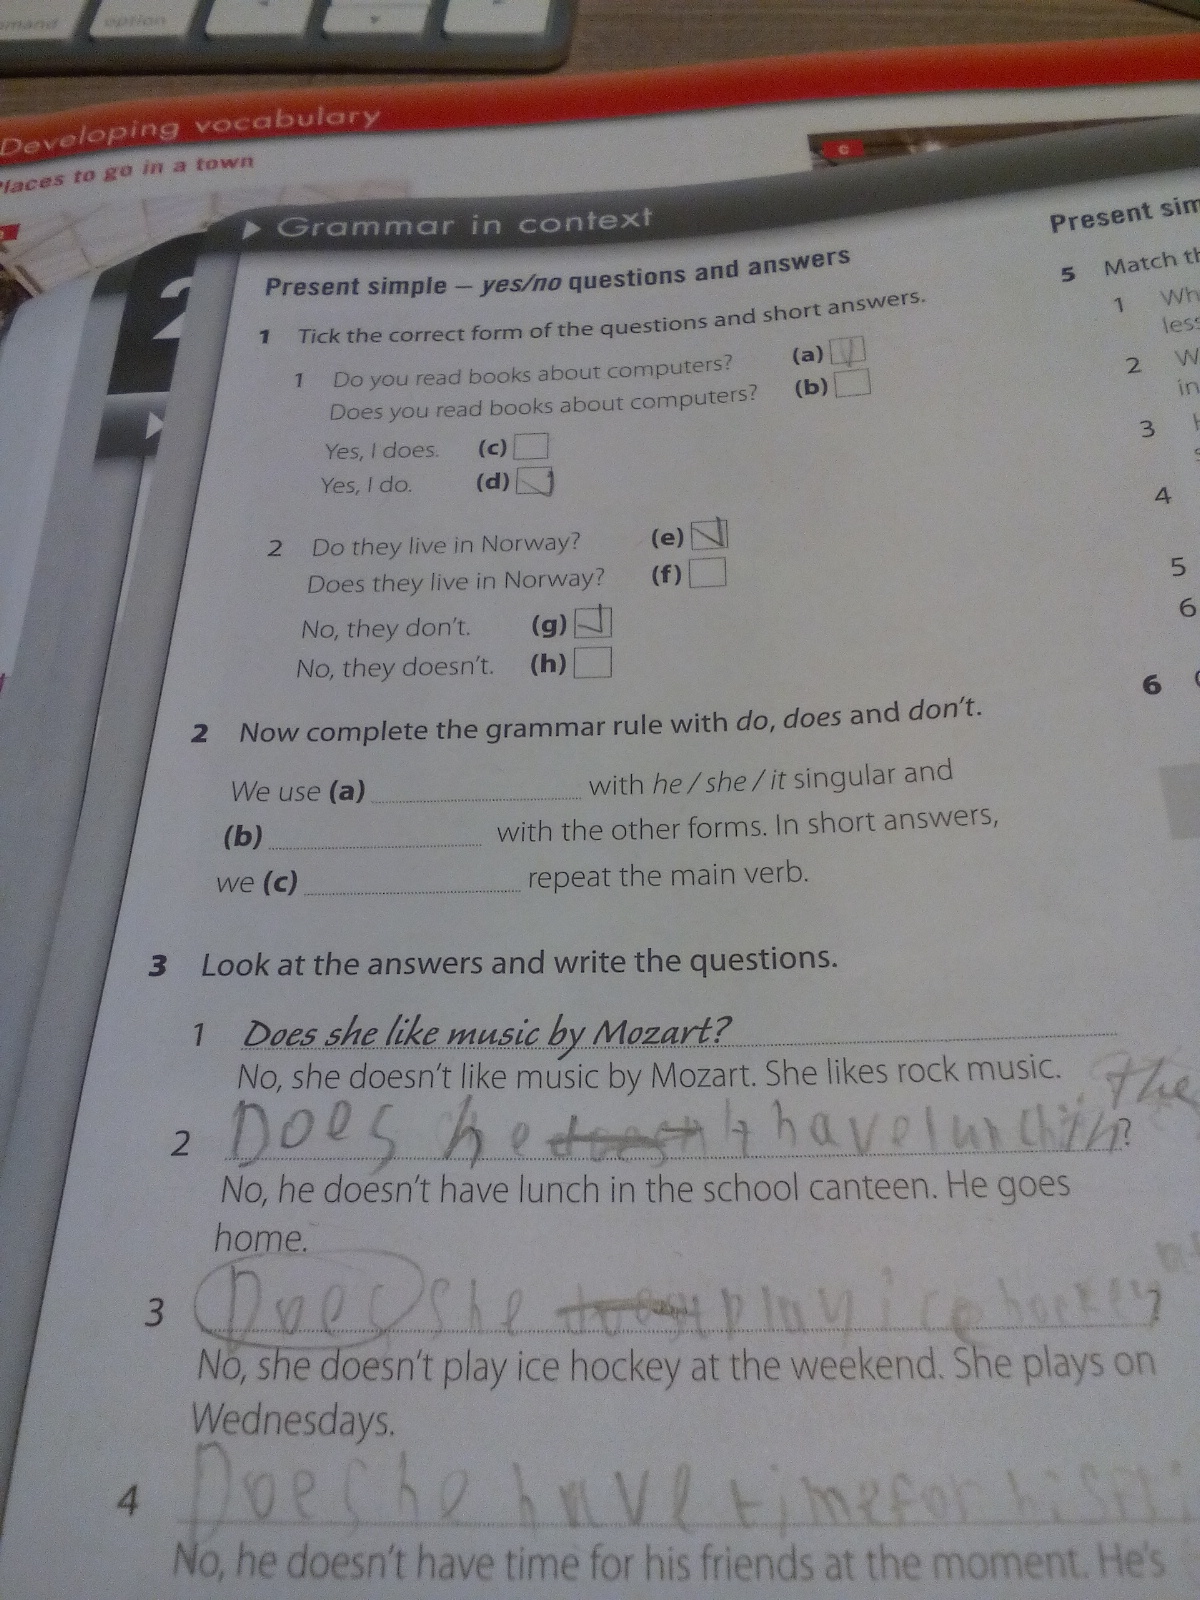 option
Developing vocabulary
Places to go in a town
c
Grammar in context
2
Present simple – yes/no questions and answers
1 Tick the correct form of the questions and short answers.
1 Do you read books about computers? (a)
Does you read books about computers? (b)
Yes, I does. (c)
Yes, I do. (d)
2 Do they live in Norway? (e)
Does they live in Norway? (f)
No, they don't. (g)
No, they doesn't. (h)
2 Now complete the grammar rule with do, does and don't.
We use (a) with he / she / it singular and
(b) with the other forms. In short answers,
we (c) repeat the main verb.
3 Look at the answers and write the questions.
1 Does she like music by Mozart?
No, she doesn't like music by Mozart. She likes rock music.
the
2 Does he have lunch in ?
No, he doesn't have lunch in the school canteen. He goes
home.
3 Does she play ice hockey ?
No, she doesn't play ice hockey at the weekend. She plays on
Wednesdays.
4 Does he have time for his
No, he doesn't have time for his friends at the moment. He's
Present
5 Match
1
2
in
3
4
5
6
6